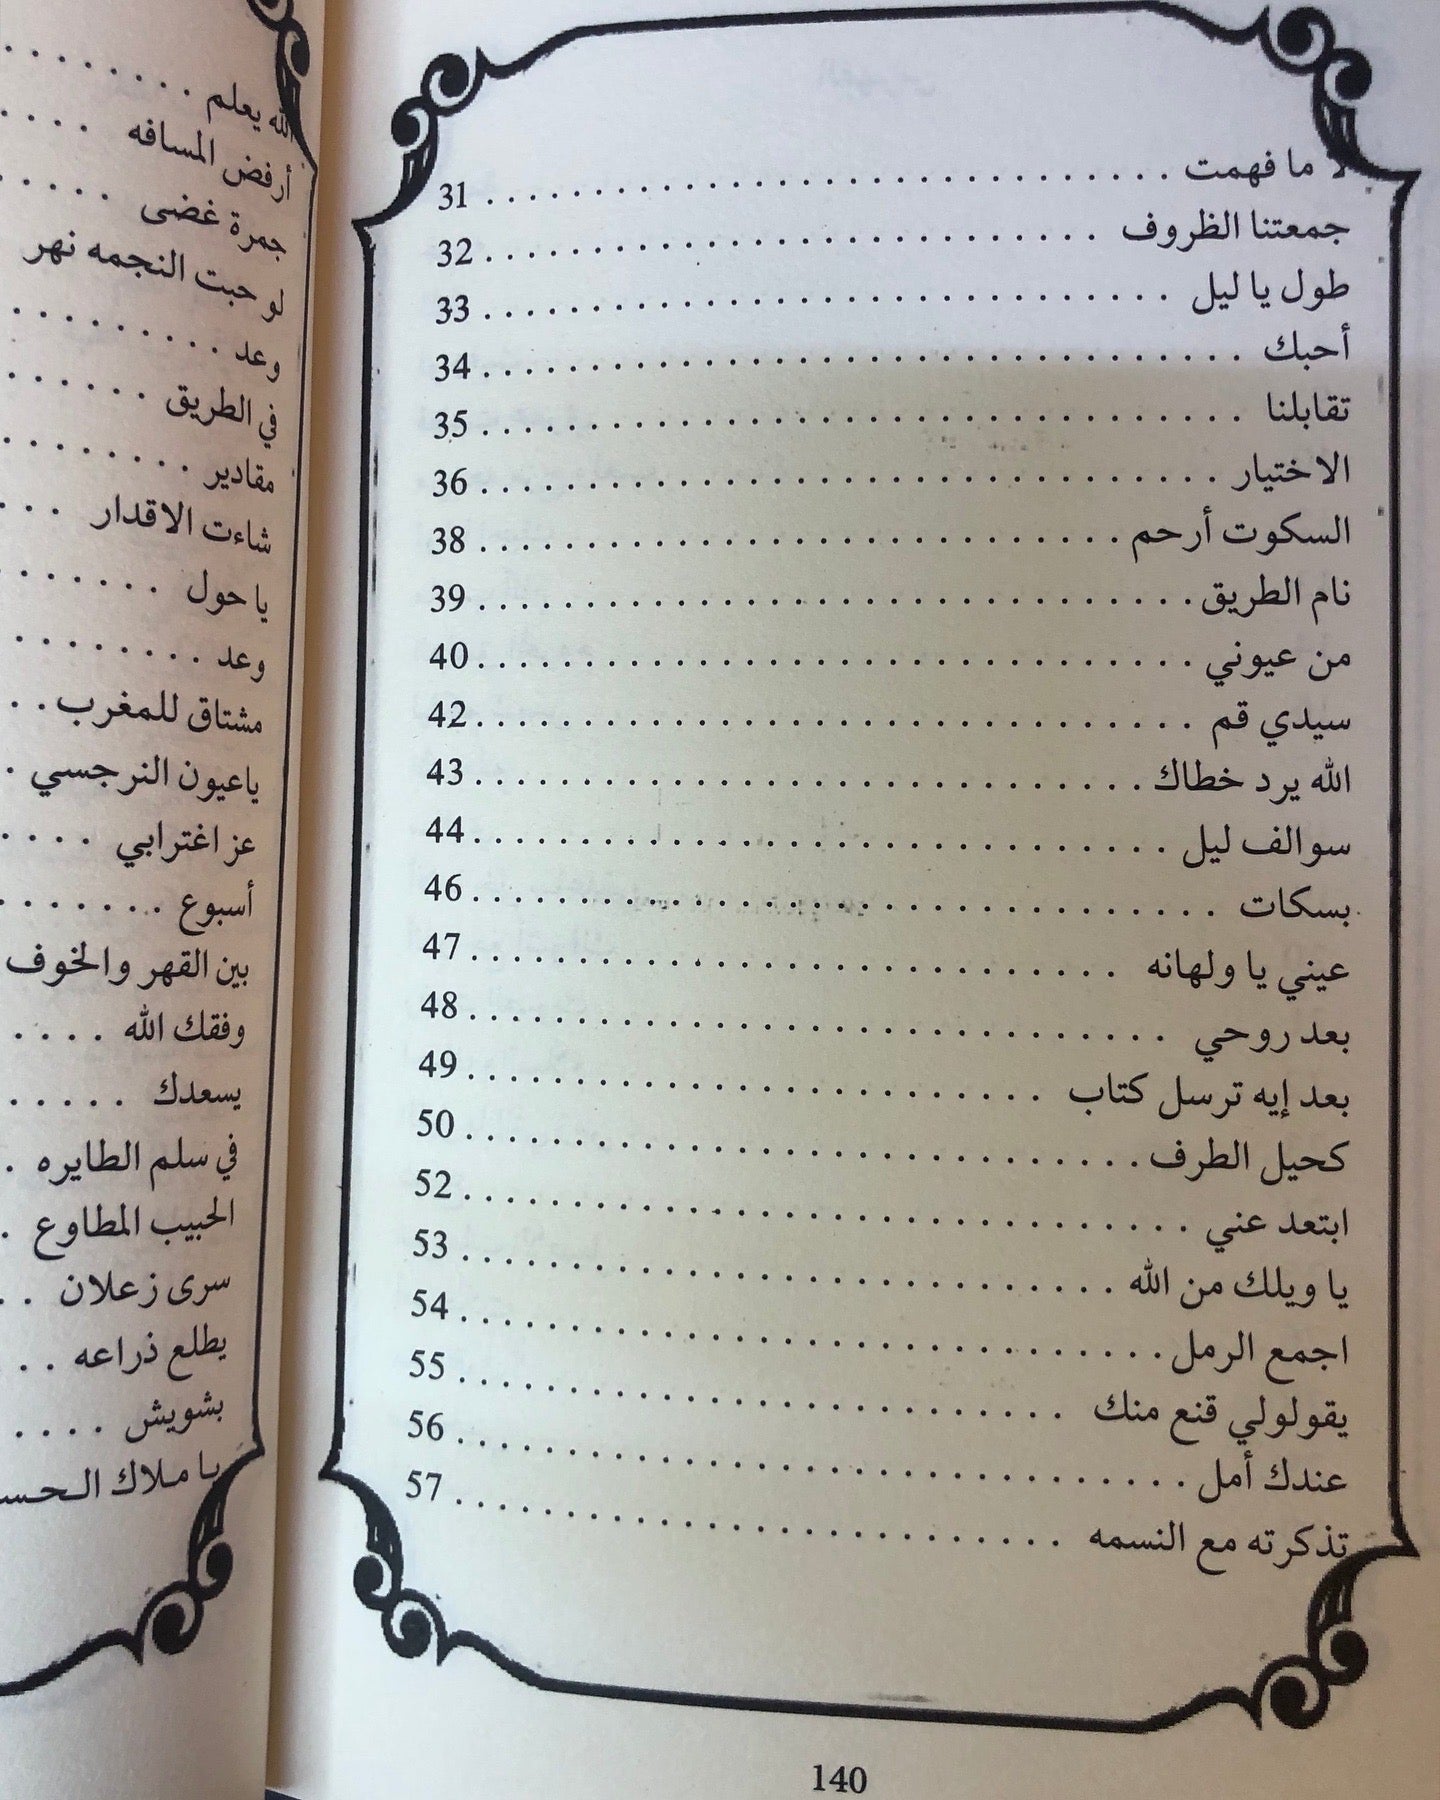 لا ما فهمت . . . . . . . . . . . . . . . . . . . . 31
جمعتنا الظروف . . . . . . . . . . . . . . . . . . . . 32
طول يا ليل . . . . . . . . . . . . . . . . . . . . 33
أحبك . . . . . . . . . . . . . . . . . . . . 34
تقابلنا . . . . . . . . . . . . . . . . . . . . 35
الاختيار . . . . . . . . . . . . . . . . . . . . 36
السكوت أرحم . . . . . . . . . . . . . . . . . . . . 38
نام الطريق . . . . . . . . . . . . . . . . . . . . 39
من عيوني . . . . . . . . . . . . . . . . . . . . 40
سيدي قم . . . . . . . . . . . . . . . . . . . . 42
الله يرد خطاك . . . . . . . . . . . . . . . . . . . . 43
سوالف ليل . . . . . . . . . . . . . . . . . . . . 44
بسكات . . . . . . . . . . . . . . . . . . . . 46
عيني يا ولهانه . . . . . . . . . . . . . . . . . . . . 47
بعد روحي . . . . . . . . . . . . . . . . . . . . 48
بعد إيه ترسل كتاب . . . . . . . . . . . . . . . . . . . . 49
كحيل الطرف . . . . . . . . . . . . . . . . . . . . 50
ابتعد عني . . . . . . . . . . . . . . . . . . . . 52
يا ويلك من الله . . . . . . . . . . . . . . . . . . . . 53
اجمع الرمل . . . . . . . . . . . . . . . . . . . . 54
يقولولي قنع منك . . . . . . . . . . . . . . . . . . . . 55
عندك أمل . . . . . . . . . . . . . . . . . . . . 56
تذكرته مع النسمه . . . . . . . . . . . . . . . . . . . . 57
140
الله يعلم . . . . . . . .
أرفض المسافه . . . .
جمرة غضى . . . . . .
لو حبت النجمه نهر
وعد . . . . . . . . .
في الطريق . . . . . . .
مقادير . . . . . . . . .
شاءت الاقدار . . .
يا حول . . . . . . .
وعد . . . . . . . . .
مشتاق للمغرب . .
ياعيون النرجسي .
عز اغترابي . . . .
أسبوع . . . . . . .
بين القهر والخوف
وفقك الله . . . .
يسعدك . . . . . .
في سلم الطايره .
الحبيب المطاوع .
سرى زعلان . .
يطلع ذراعه . . .
بشويش . . . .
يا ملاك